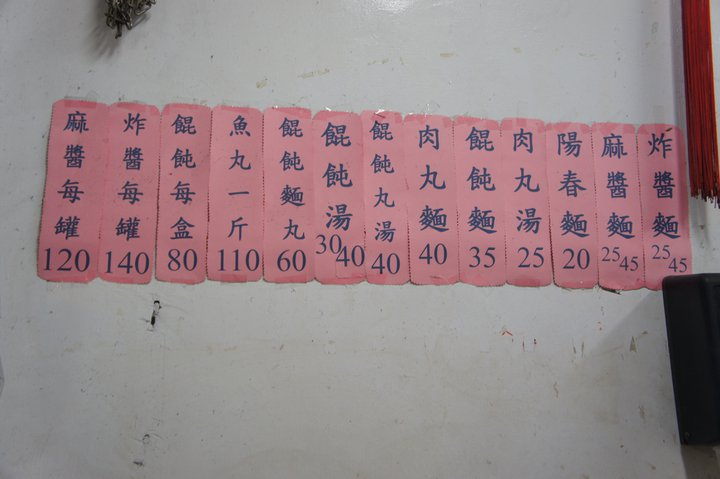 炸醬麵 25 45
麻醬麵 25 45
陽春麵 20
肉丸湯 25
餛飩麵 35
肉丸麵 40
餛飩丸湯 40
餛飩湯 30 40
餛飩麵丸 60
魚丸一斤 110
餛飩每盒 80
炸醬每罐 140
麻醬每罐 120